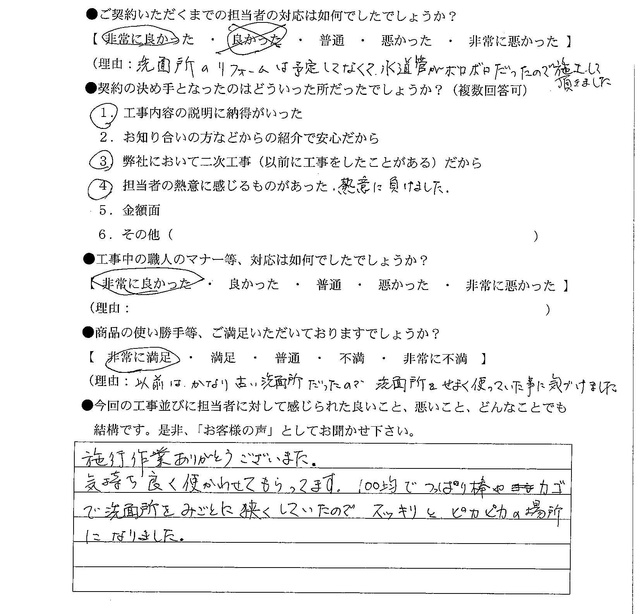 ●ご契約いただくまでの担当者の対応は如何でしたでしょうか?
【 非常に良かった ・ 良かった ・ 普通 ・ 悪かった ・ 非常に悪かった 】
(理由:洗面所のリフォームは予定してなくて、水道管がボロボロだったので施工して頂きました
●契約の決め手となったのはどういった所だったでしょうか?(複数回答可)
1.工事内容の説明に納得がいった
2.お知り合いの方などからの紹介で安心だから
3.弊社において二次工事(以前に工事をしたことがある)だから
4.担当者の熱意に感じるものがあった.熱意に負けました.
5.金額面
6.その他( )
●工事中の職人のマナー等、対応は如何でしたでしょうか?
【 非常に良かった ・ 良かった ・ 普通 ・ 悪かった ・ 非常に悪かった 】
(理由: )
●商品の使い勝手等、ご満足いただいておりますでしょうか?
【 非常に満足 ・ 満足 ・ 普通 ・ 不満 ・ 非常に不満 】
(理由:以前は、かなり古い洗面所だったので 洗面所をせまく使っていた事に気づけました
●今回の工事並びに担当者に対して感じられた良いこと、悪いこと、どんなことでも
結構です。是非、「お客様の声」としてお聞かせ下さい。
施行作業ありがとうございました。
気持ち良く使かわせてもらってます。100均でつっぱり棒やカゴ
で洗面所をみごとに狭くしていたので スッキリとピカピカの場所
になりました。